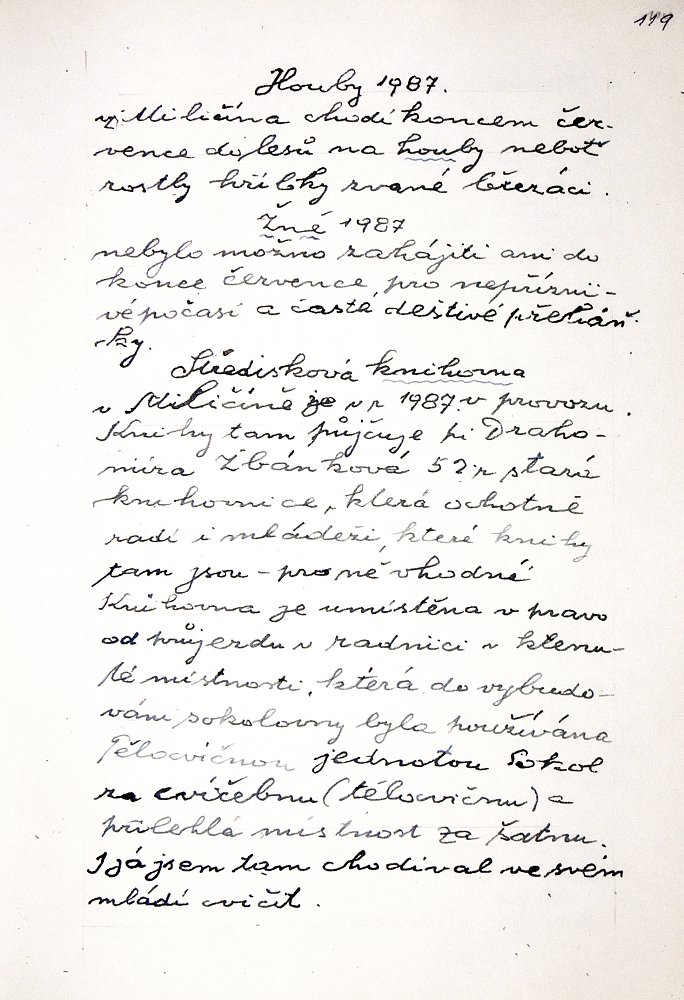 119
Houby 1987.
z Miličína chodí koncem čer-
vence do lesů na houby neboť
rostly hříbky zvané březáci.
Žně 1987
nebylo možno zahájiti ani do
konce července, pro nepřízni-
vé počasí a časté deštivé přeháň-
ky.
Středisková knihovna
v Miličíně je v r 1987. v provozu.
Knihy tam půjčuje pí Draho-
míra Zbánková 52 r stará
knihovnice, která ochotně
radí i mládeži, které knihy
tam jsou - pro ně vhodné
Knihovna je umístěna v pravo
od průjezdu v radnici v klenu-
té místnosti, která do vybudo-
vání sokolovny byla používána
Tělocvičnou jednotou Sokol
za cvičebnu (tělocvičnu) a
přilehlá místnost za šatnu.
I já jsem tam chodíval ve svém
mládí cvičit.